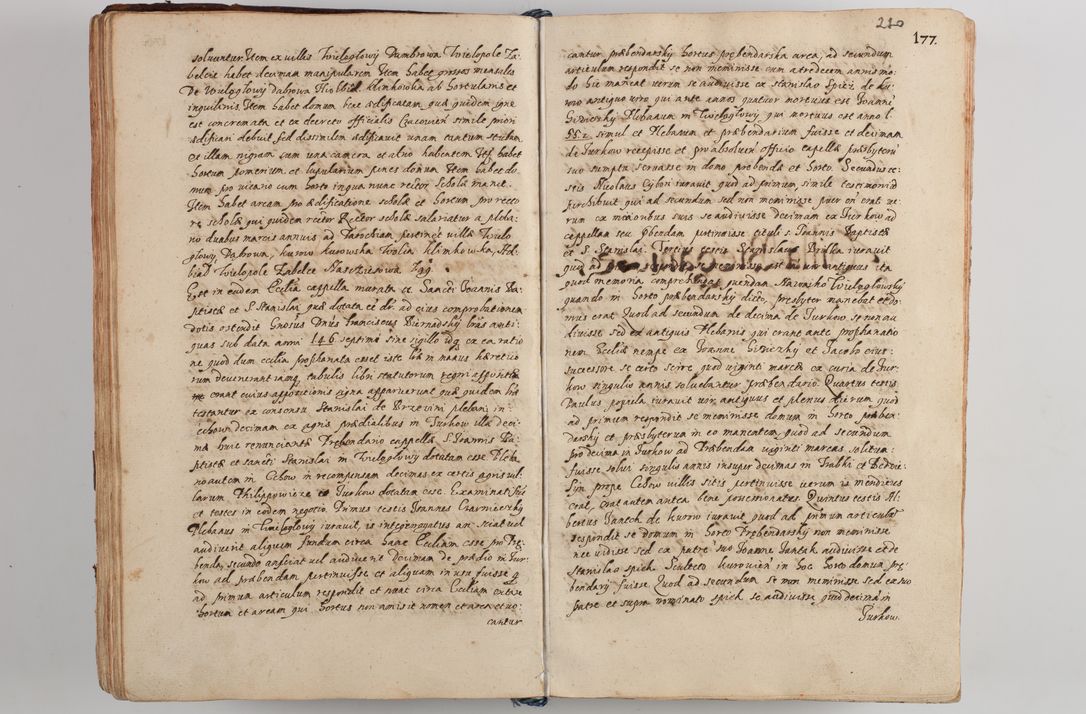 soluuntur Item ex villis Wieloglowy Dambrowa Wielopole Za
belcie habet decimam manipularem Item habet grossos mensales
De Wieloglowy Dabrowa Klimkowka ab hortulanis et
inquilinis Item habet domum bene edificatam, quæ quidem igne
est concremata et ex decreto officialis Cracouien simile priori
edificari debuit sed dissimilem edificauit unam tantum stubam
et illam nigram cum una camera et alio habentem Itẽ habet
hortum pomerium et lupularium penes domum Item habet do
mum pro vicario cum horto in qua nunc rector scholæ manet.
Item habet aream pro edificatione scholæ et hortum pro recto
re scholæ qui quidem rector Rector scholæ salariatur a pleba
no duabus marcis annuis ad Parochiam pertinet villæ Wielo
glowy, Dabrowa, kurow kurowska Wolia Klimkowka,
Wielopole Zabelcie
Est in eadem Ecclia cappella murata et Sancti Joannis Ba
ptistæ et S. Stanislai quæ dotata ee dr. ad cuius comprobationem
dotis ostendit Gnosus Dnus Franciscus Biernadsky lras anti
quas sub data anni 146 septimo sine sigillo idq ex ea ratio
ne quod dum ecclia prophanata esset istæ lræ in manus hæretico
rum deuenerant iamq tabulis libri statutorum regni affixæ
erant cuius appositionis signa apparuerunt quæ quidem lræ
testantur ex consensu Stanislai de Brzezini plebani in
decimam ex agris prædialibus in Jurkow illa deci
ma huic renunciante Prebendario cappellæ S. Joannis Ba
ptistæ et sancti Stanislai in Wieloglowy dotatam esse Pleba
no autem in Cchow in recompensam decimas ex certis agris vil
larum Philippowice et Jurkow dotatam esse. Examinati sũt
et testes in eodem negotio. Primus testis Joannes Czarniecky
Plebanus in Wieloglowy iurauit, is interrogatus an sciat vel
audiuerit aliquem fundum circa hanc Eccliam esse pro Præ
benda, secundo an sciat vel audiuerit Decimam de prædio in Jur
kow ad præbendam pertinuisse et aliquam in usu fuisse q
ad primum articulum respondit et nunc circa Eccliam extare
hortum et aream qui hortus non amisit nomen et area et uo
cantur

210
177
cantur præbendarsky hortus præbendarska area, ad secundum
articulum respondit se non meminisse cum a tredecim annis mo
do hic maneat uerum se audiuisse ex Stanislao Spiez de ku
rowo antiquo uiro qui ante annos quatuor mortuus est Joanni
Giziczky Plebanum in Wieloglowy qui mortuus est anno 1
552 simul et Plebanum et præbendarium fuisse et decimam
de Jurkow recepisse et pro absoluendo officio capellæ præsbyterũ
suo sumptu seruasse in domo præbendæ et horto. Secundus te
stis Nicolaus Cybon iurauit quod ad primum, simile testimonium
perhibuit qui ad secundum sed non meminisse puer em erat ue
rum ex maioribus suis se audiuisse Decimam ex Jurkow ad
cappellam seu pbendam pertinuisse tituli s. Joannis Baptistæ
et S. Stanislai. Tertius testis Stanislaus iurauit
quod ad primum respondit se meminisse antiquus ita
quod memoria comprehendat quendam Nawoicho Wieloglowsky
quando in horto præbendarsky dicto, presbyter manebat et do
mus erat Quod ad secundum de decima de Jurkow se non au
diuisse sed ex antiquis Plebanis qui erant ante prophanatio
nem Eccliæ nempe ex Joanne Giziczky et Jacobo eius
successore se certo scire quod viginti marcæ ex curia de Jur
kow singulis annis soluebantur præbendario. Quartus testis
Paulus pogiela iurauit uir antiquus et plenus dierum quod
ad primum respondit se meminisse domum in horto præben
darsky et præsbyterum in eo manentem, quod ad secundum
pro decima in Jurkow ad Præbendam viginti marcas solitum
fuisse solui singulis annis insuper decimas in
prope Cchow villis sitis pertinuisse uerum is mendicus
erat, erat autem antea bene possessionatus. Quintus testis Al
bertus Janech de kurow iurauit quod ad primum articulum
respondit se domum in horto Præbendarsky non meminisse
nec vidisse sed ex patre suo Joanne Janech audiuisse et de
Stanislao spiech Sculteto kurouien in hoc horto domum præ
bendarij fuisse. Quod ad secundum se non meminisse sed ex suo
patre et supra nominato spiech se audiuisse quod decima in
Jurkow.